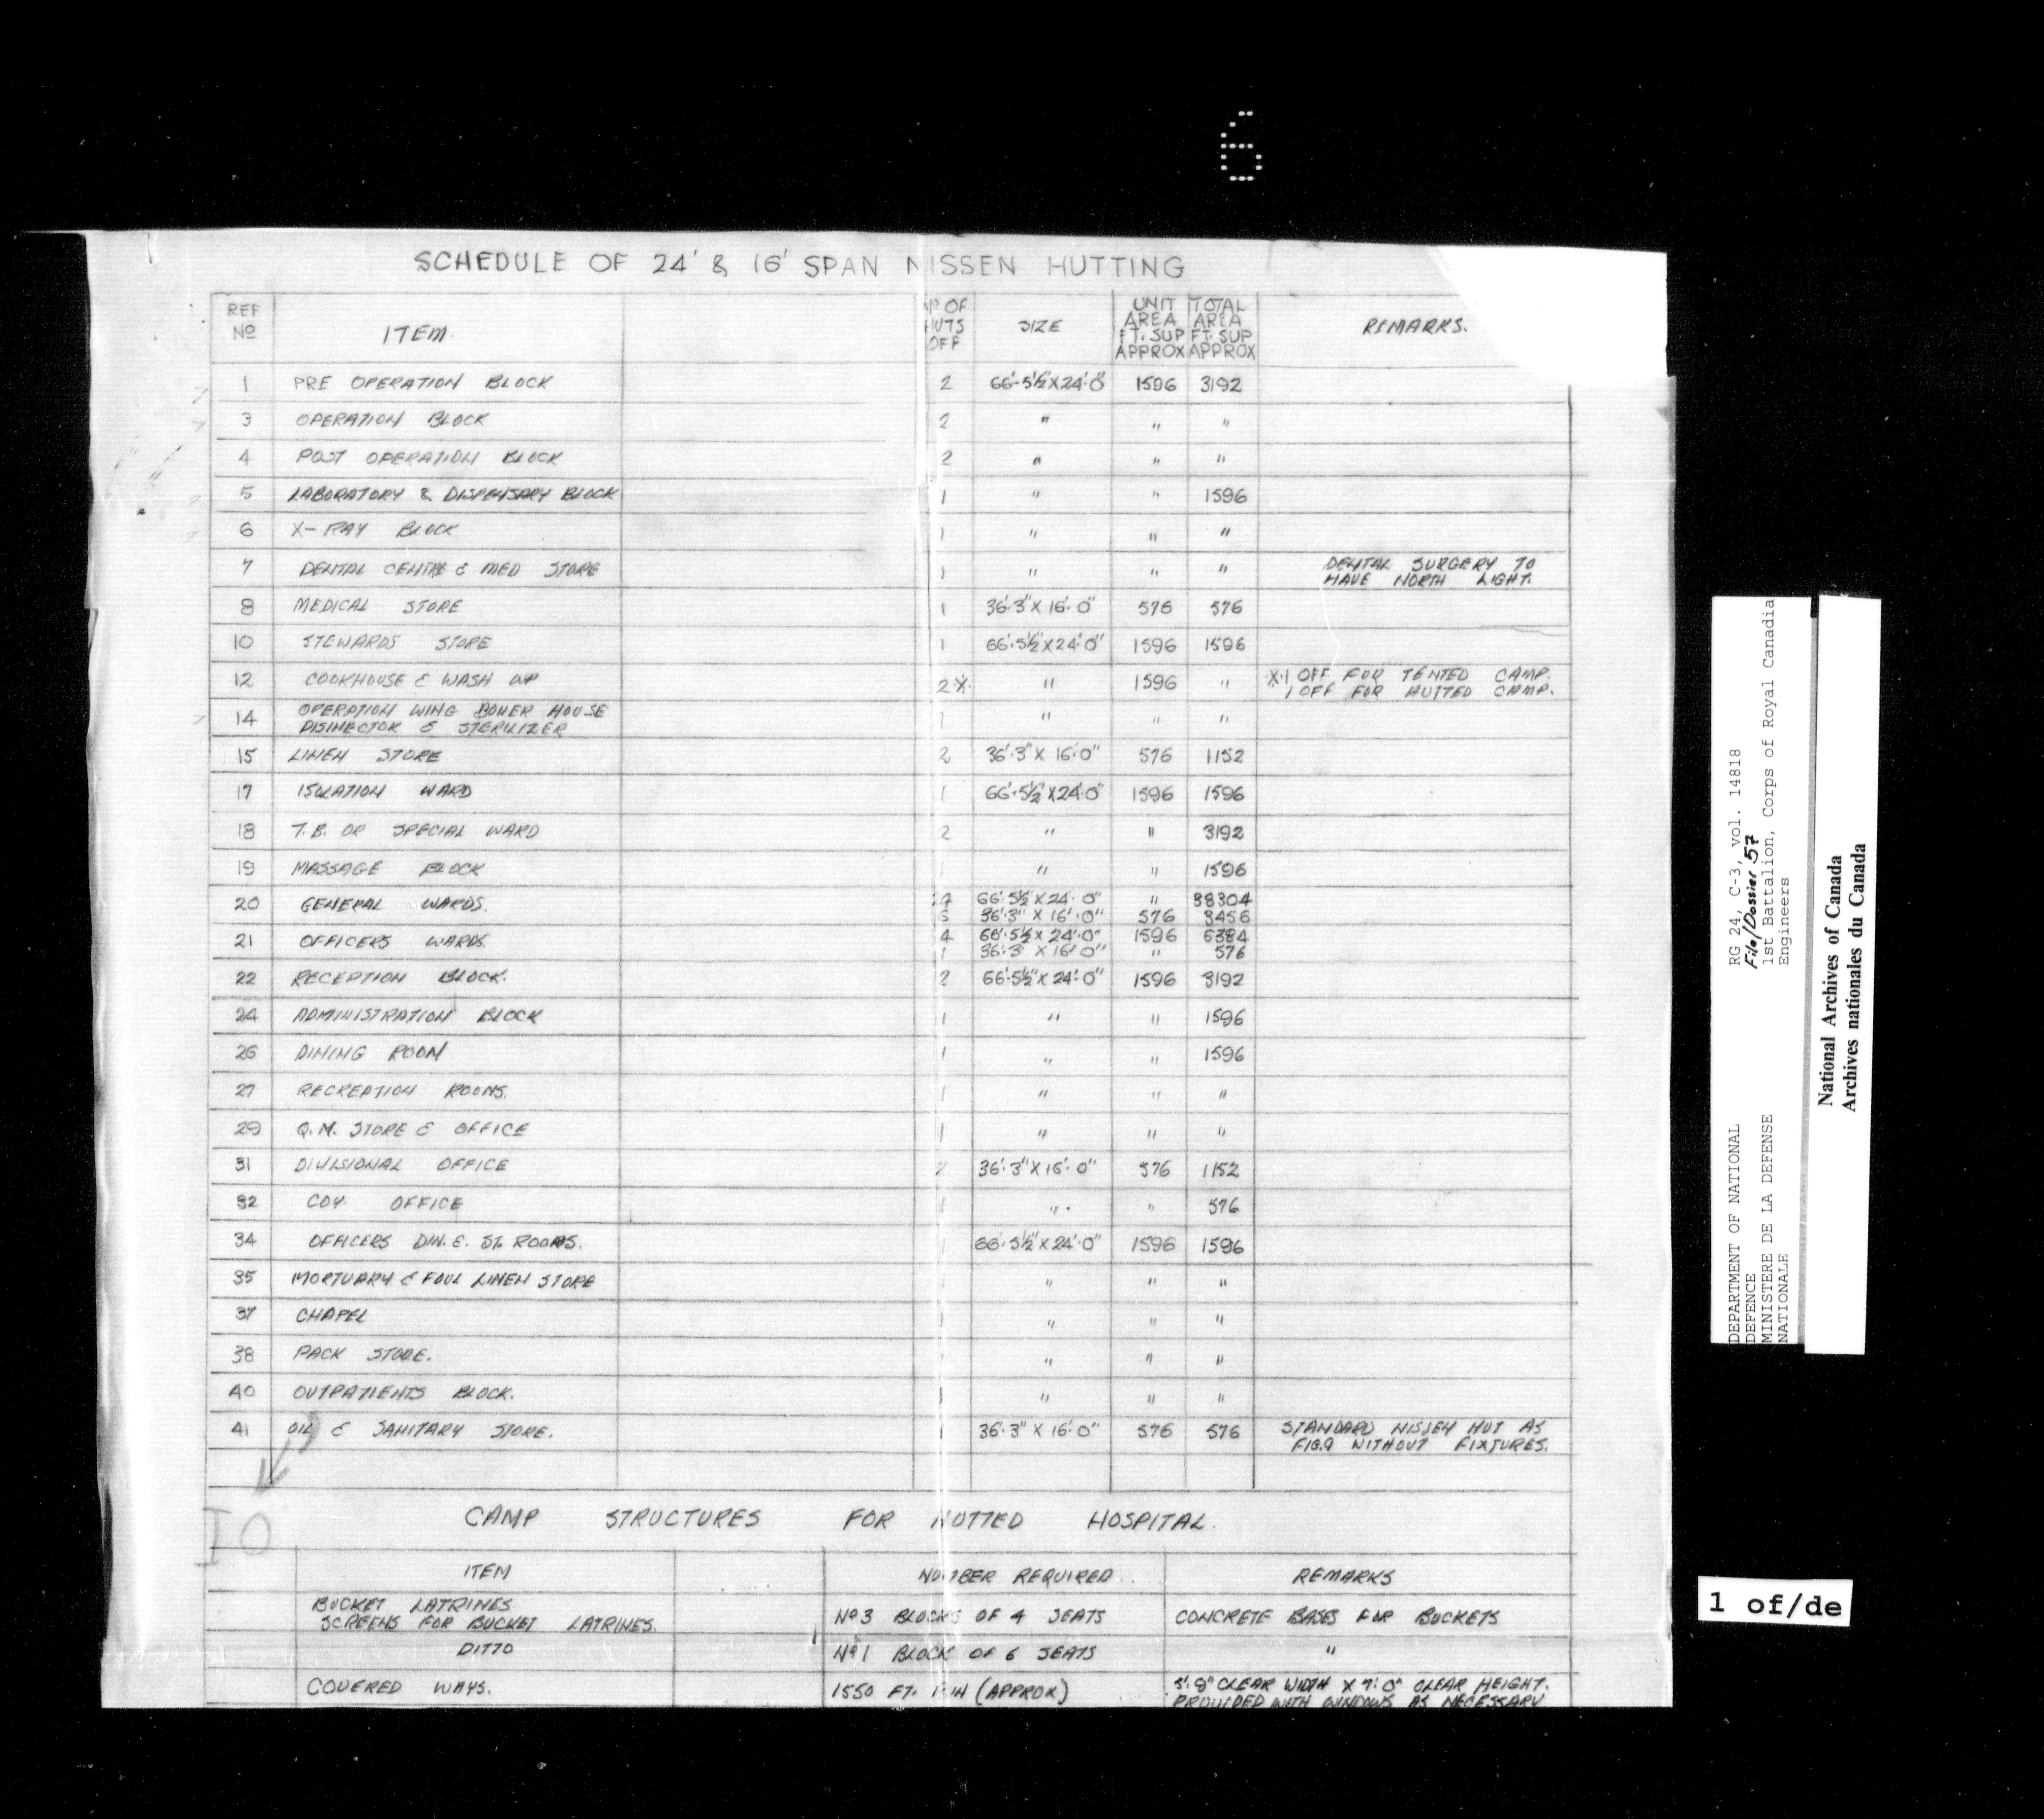 6
SCHEDULE OF 24' & 16' SPAN NISSEN HUTTING
REF Nº ITEM. Nº OF HUTS OFF SIZE UNIT AREA FT. SUP APPROX TOTAL AREA FT. SUP APPROX REMARKS.
1 PRE OPERATION BLOCK 2 66'-5½" X 24'·0" 1596 3192
3 OPERATION BLOCK 2 " " "
4 POST OPERATION BLOCK 2 " " "
5 LABORATORY & DISPENSARY BLOCK 1 " " 1596
6 X-RAY BLOCK 1 " " "
7 DENTAL CENTRE & MED STORE 1 " " " DENTAL SURGERY TO
HAVE NORTH LIGHT.
8 MEDICAL STORE 1 36'·3" X 16'·0" 576 576
10 STEWARDS STORE 1 66'·5½" X 24'·0" 1596 1596
12 COOKHOUSE & WASH UP 2 X. " 1596 " X·1 OFF FOR TENTED CAMP.
1 OFF FOR HUTTED CAMP.
14 OPERATION WING BOILER HOUSE
DISINECTOR & STERILIZER 1 " " "
15 LINEN STORE 2 36'·3" X 16'·0" 576 1152
17 ISOLATION WARD 1 66'·5½" X 24'·0" 1596 1596
18 T.B. OR SPECIAL WARD 2 " " 3192
19 MASSAGE BLOCK 1 " " 1596
20 GENERAL WARDS. 24 66'·5½" X 24'·0" " 38304
6 36'3" X 16'·0" 576 3456
21 OFFICERS WARDS. 4 66'·5½ X 24'·0" 1596 6384
1 36'·3" X 16'·0" " 576
22 RECEPTION BLOCK. 2 66'·5½" X 24'·0" 1596 3192
24 ADMINISTRATION BLOCK 1 " " 1596
26 DINING ROOM 1 " " 1596
27 RECREATION ROOMS. 1 " " "
29 Q.M. STORE & OFFICE 1 " " "
31 DIVISIONAL OFFICE 2 36'·3" X 16'·0" 576 1152
32 COY. OFFICE 1 " " 576
34 OFFICERS DIN. & ST. ROOMS. 66'·5½" X 24'·0" 1596 1596
35 MORTUARY & FOUL LINEN STORE 1 " " "
37 CHAPEL 1 " " "
38 PACK STORE. 1 " " "
40 OUTPATIENTS BLOCK. 1 " " "
41 OIL & SANITARY STORE. 1 36'·3" X 16'·0" 576 576 STANDARD NISSEN HUT AS
FIG.9 WITHOUT FIXTURES.
CAMP STRUCTURES FOR HUTTED HOSPITAL.
ITEM NUMBER REQUIRED. REMARKS
BUCKET LATRINES
SCREENS FOR BUCKET LATRINES. Nº3 BLOCKS OF 4 SEATS CONCRETE BASES FOR BUCKETS
DITTO Nº1 BLOCK OF 6 SEATS "
COVERED WAYS. 1550 FT. RUN (APPROX) 5'·9" CLEAR WIDTH X 7'·0" CLEAR HEIGHT.
PROVIDED WITH WINDOWS AS NECESSARY
DEPARTMENT OF NATIONAL
DEFENCE
MINISTERE DE LA DEFENSE
NATIONALE
RG 24, C-3, vol. 14818
File/Dossier 57
1st Battalion, Corps of Royal Canadia
Engineers
National Archives of Canada
Archives nationales du Canada
1 of/de